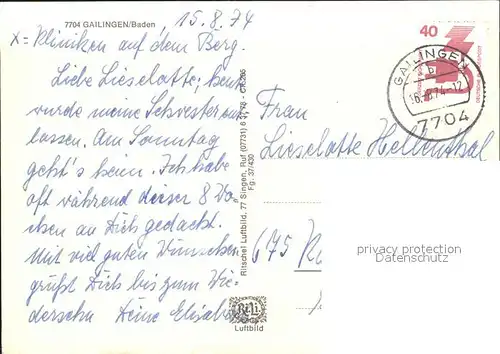 7704 GAILINGEN/Baden
15.8.74
x = Kliniken auf dem Berg.
Liebe Lieselotte: heut
wurde meine Schwester ent
lassen. Am Sonntag
geht's heim. Ich habe
oft während dieser 8 Wo,
chen an Dich gedacht.
Mit viel guten Wünschen
grüßt Dich bis zum Wie,
dersehn Deine Elisabe
Reli
Luftbild
Ritschel Luftbild, 77 Singen, Ruf (07731) 6
Fg. 37/430
40
GAILINGEN
b
74-12
7704
Frau
Lieselotte Hellenthal
675
privacy protection
Datenschutz